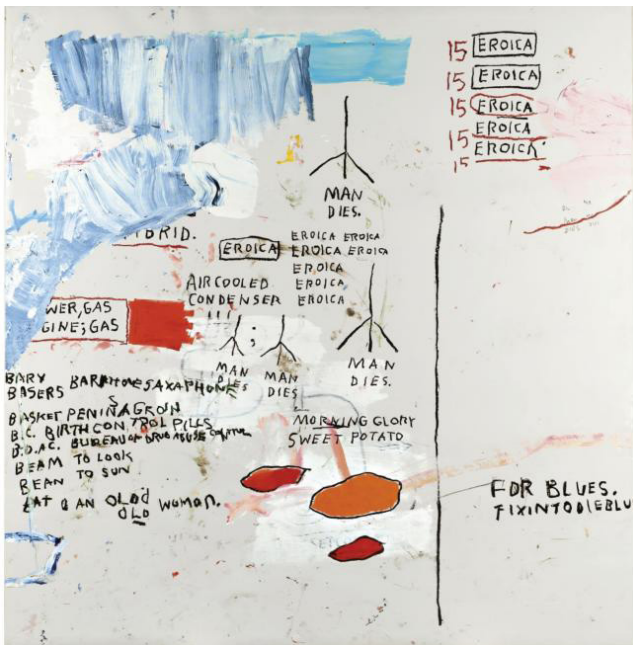 15 EROICA
15 EROICA
15 EROICA
15 EROICA
15 EROICA
MAN
DIES.
BRID.
EROICA
EROICA EROICA
EROICA EROICA
EROICA
EROICA
EROICA
AIRCOOLED
CONDENSER
WER,GAS
GINE;GAS
;
MAN
DIES
MAN
DIES
MAN
DIES.
BARY BARITONE SAXAPHONE
BASERS
BASKET PENIN AGROIN
B.C. BIRTH CONTROL PILLS
B.D.A.C. BUREAU OF DRUG ABUSE CONTROL
BEAM TO LOOK
BEAN TO SUN
AN OLD
OLD
WOMAN.
MORNING GLORY
SWEET POTATO
FOR BLUES.
FIXINTODIEBLU